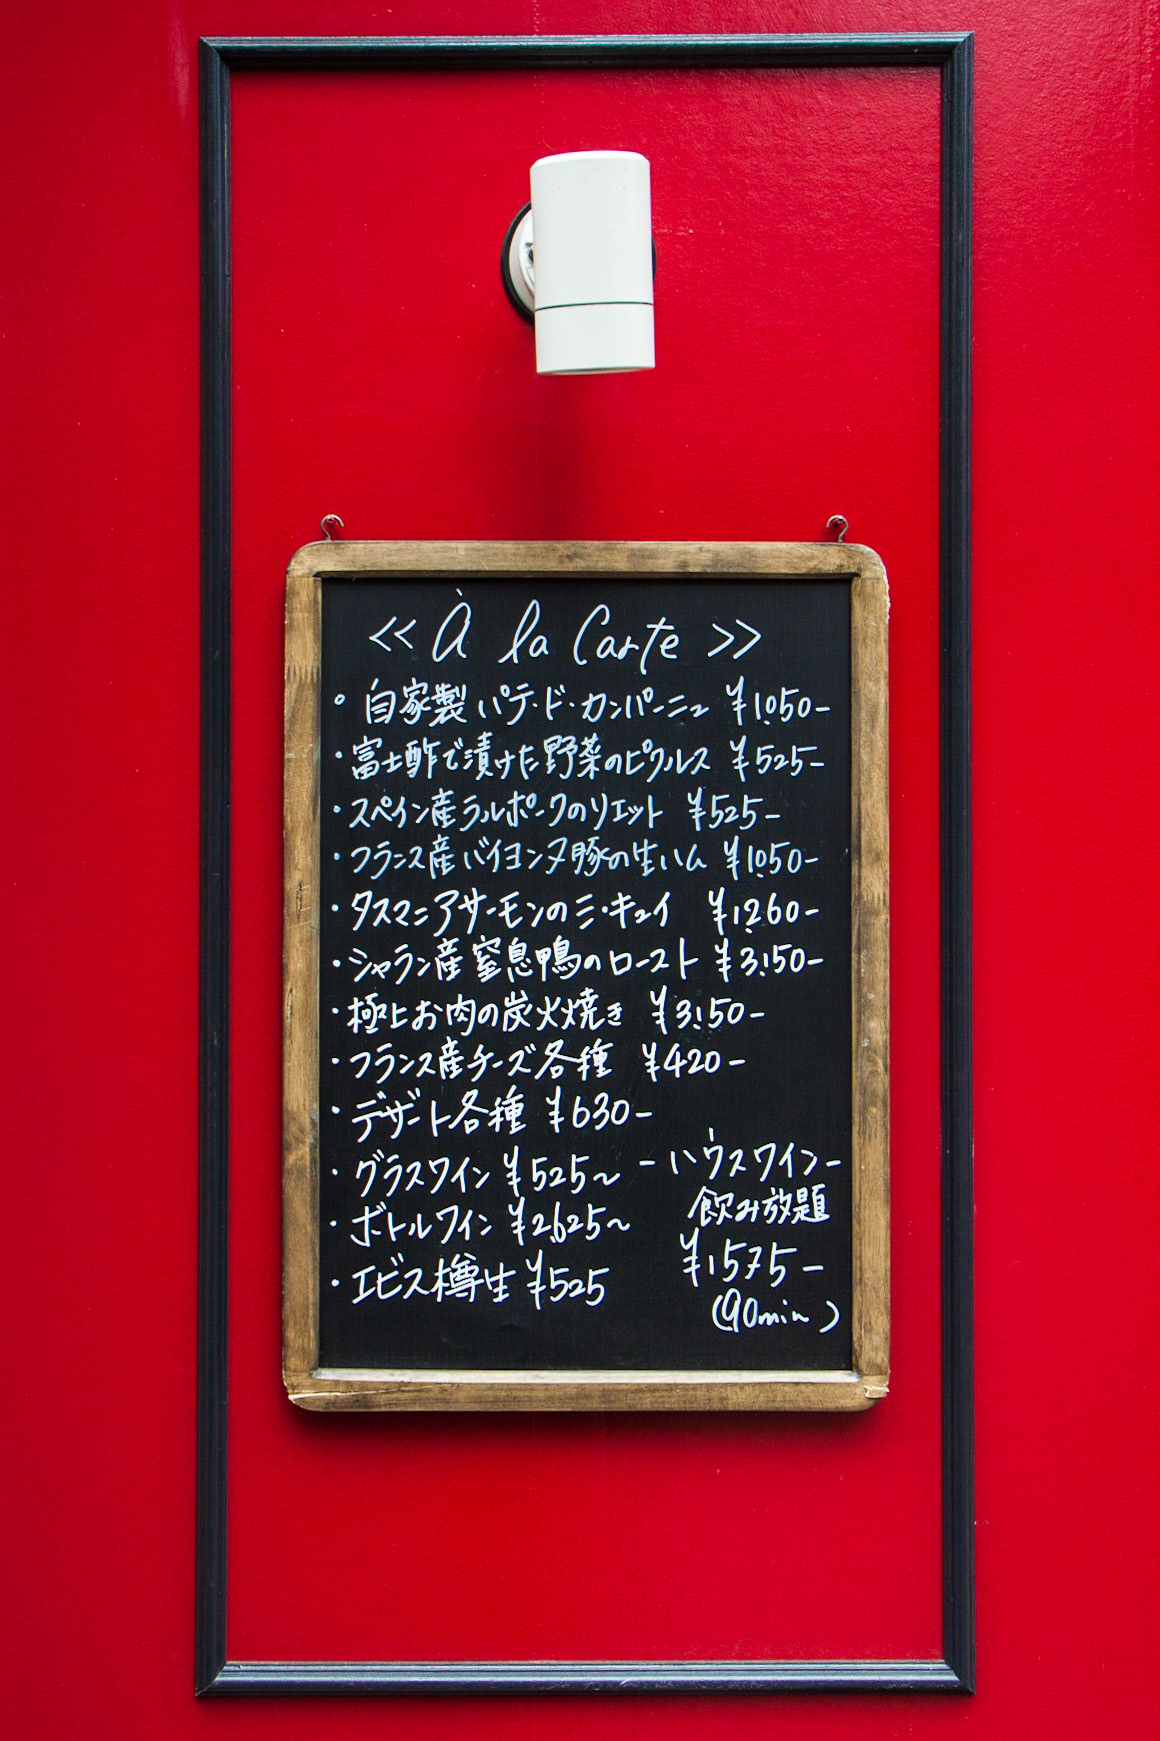 << À la Carte >>
° 自家製パテ・ド・カンパーニュ ¥1,050-
・富士酢で漬けた野菜のピクルス ¥525-
・スペイン産ラルポークのリエット ¥525-
・フランス産バイヨンヌ豚の生ハム ¥1,050-
・タスマニアサーモンのミ・キュイ ¥1,260-
・シャラン産窒息鴨のロースト ¥3,150-
・極上お肉の炭火焼き ¥3,150-
・フランス産チーズ各種 ¥420-
・デザート各種 ¥630-
・グラスワイン ¥525~
・ボトルワイン ¥2,625~
・エビス樽生 ¥525
-ハウスワイン-
飲み放題
¥1575-
(90min)